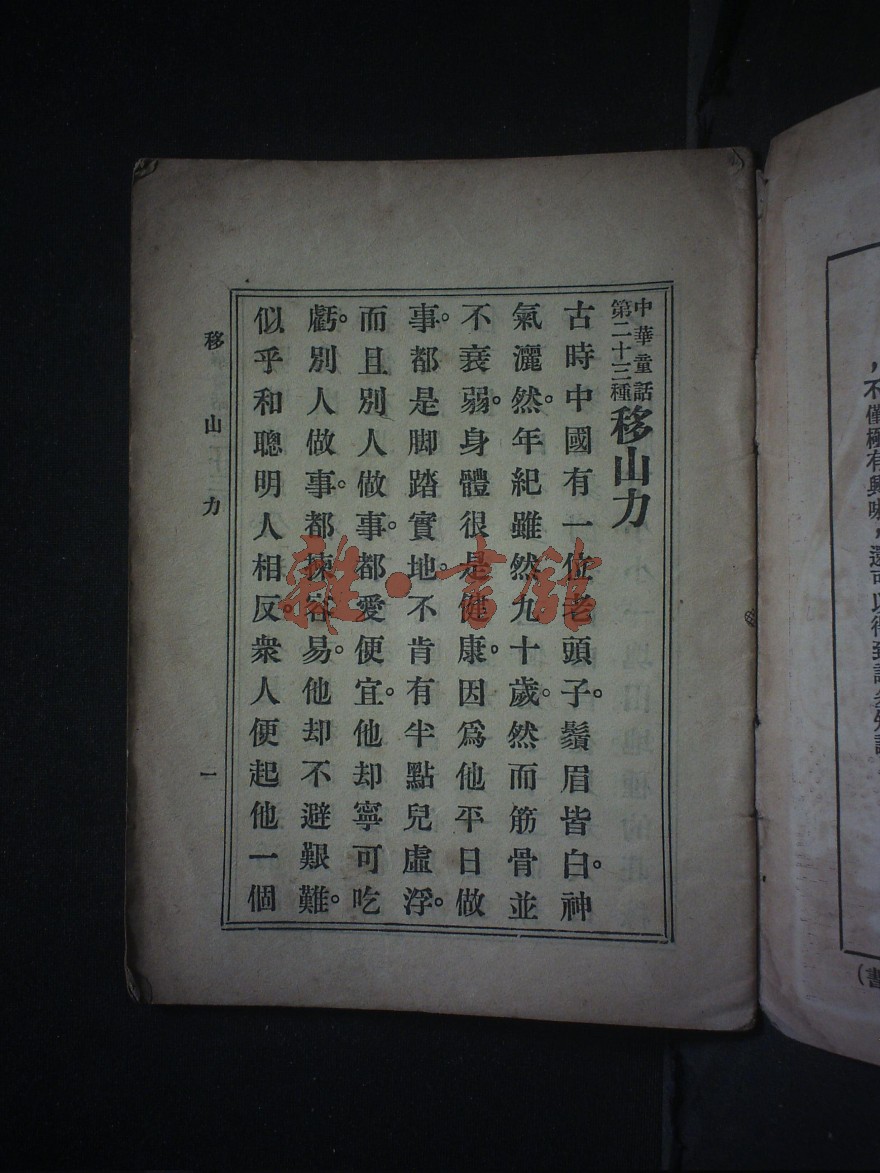 中華童話
第二十三種
移山力
古時中國有一位老頭子。鬚眉皆白。神
氣灑然。年紀雖然九十歲。然而筋骨並
不衰弱。身體很是健康。因爲他平日做
事。都是脚踏實地。不肯有半點兒虛浮。
而且別人做事。都愛便宜。他却寧可吃
虧。別人做事。都揀容易。他却不避艱難。
似乎和聰明人相反。衆人便起他一個
移山力
一
雜·書館
，不僅極有興味，還可以得到許多知識
(書